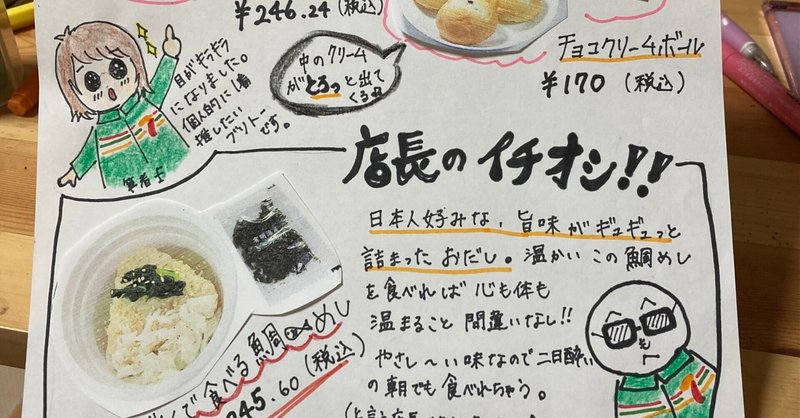 ¥246.24(税込)
目がギラギラ
になりました。
個人的に1番
推したい
ブリトーです。
中のクリーム
がとろっと出て
くる
チョコクリームボール
¥170(税込)
店長のイチオシ!!
日本人好みな、旨味がギュギュっと
詰まったおだし。温かいこの鯛めし
を食べれば心も体も
温まること間違いなし!!
やさし〜い味なので二日酔い
の朝でも食べれちゃう。
で食べる鯛めし
245.60(税込)